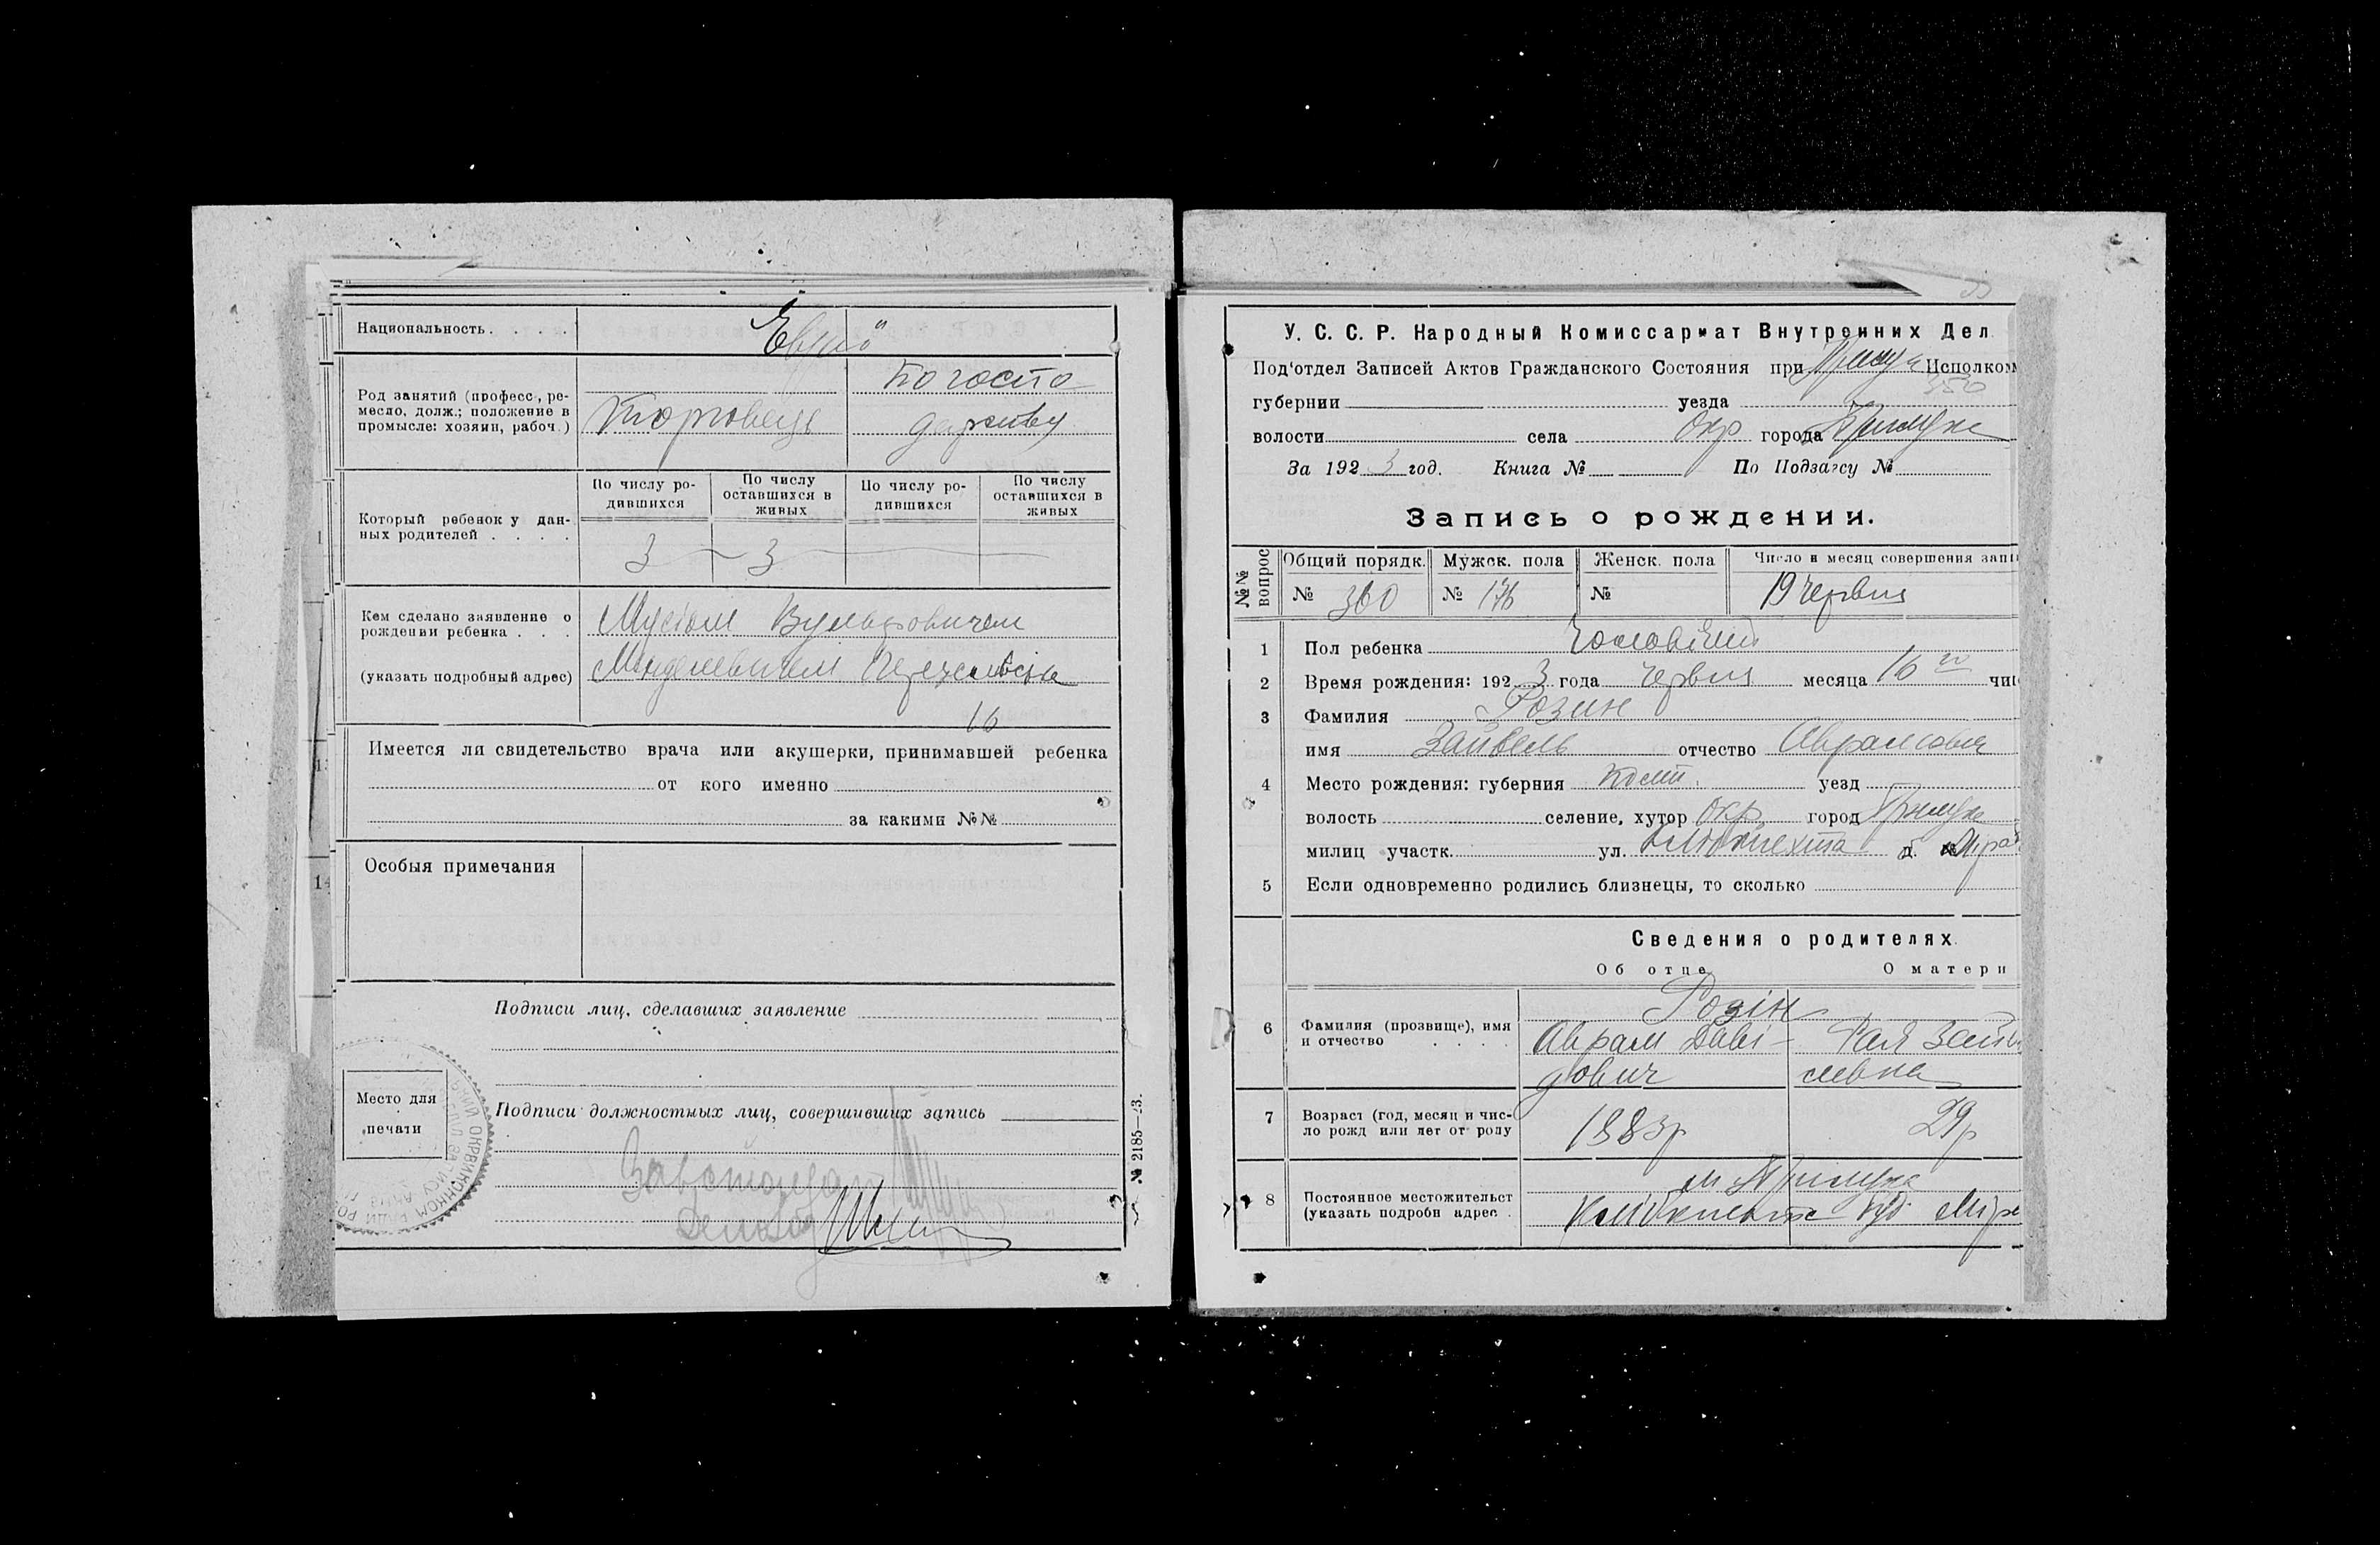 Национальность
Род занятий (професс, ре-
месло, долж.; положение в
промысле: хозяин, рабоч.)
Торговець
По госпо
дарству
Который ребенок у дан-
ных родителей
По числу ро-
дившихся
По числу
оставшихся в
живых
По числу ро-
дившихся
По числу
оставшихся в
живых
3 3
Кем сделано заявление о
рождении ребенка
(указать подробный адрес)
Мусіом Вульфовичем
16
Имеется ли свидетельство врача или акушерки, принимавшей ребенка
от кого именно
за какими №№
Особыя примечания
Подписи лиц, сделавших заявление
Место для
печати
Подписи должностных лиц, совершивших запись
№ 2185—23.
У. С. С. Р. Народный Комиссариат Внутренних Дел
Под'отдел Записей Актов Гражданского Состояния при Исполком
350
губернии уезда
волости села Окр города Прилуки
За 1923 год. Книга № По Подзагсу №
Запись о рождении.
№№ вопрос
Общий порядк. Мужск. пола Женск. пола Число и месяц совершения запи
№ 360 № 176 № 19 червня
1 Пол ребенка
2 Время рождения: 1923 года червня месяца 16 чис
3 Фамилия Розин
имя Зайвель отчество Аврамович
4 Место рождения: губерния уезд
волость селение, хутор Окр. город Прилуки
милиц участк. ул. д.
5 Если одновременно родились близнецы, то сколько
Сведения о родителях.
Об отце О матери
6 Фамилия (прозвище), имя
и отчество
Розін
Аврам Даві-
дович
Рая Зейв
левна
7 Возраст (год, месяц и чис-
ло рожд или лет от роду
1883р 29р
8 Постоянное местожительст
(указать подробн адрес
м Прилуки